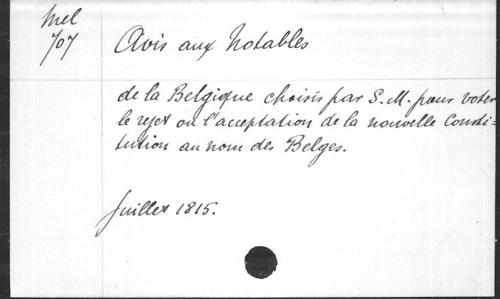 Mel
707
Avis aux Notables
de la Belgique choisis par S. M. pour voter
le rejet ou l'acceptation de la nouvelle Consti=
tution au nom des Belges.
Juillet 1815.